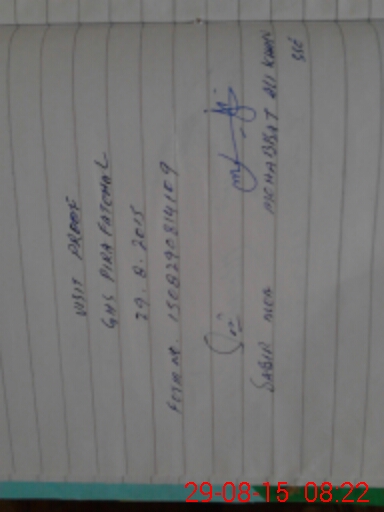 VISIT PROOF
GHS PIRA FATEHAL
29. 8. 2015
FORM NO. 1508290814109
SABIR MEA
MOHABBAT ALI KHAN
SSE
29-08-15 08:22